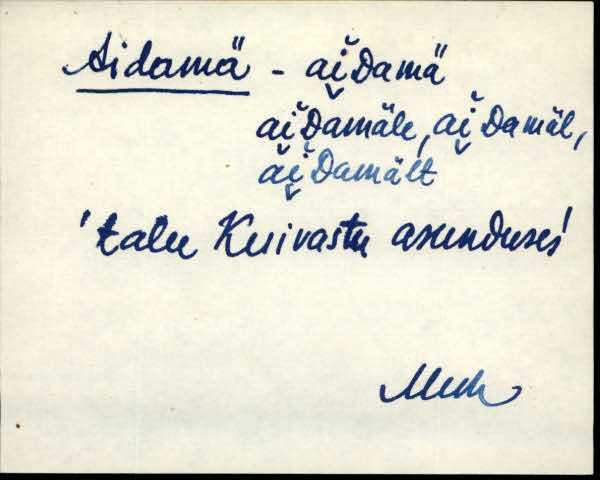 Aidamä - ai̬Damä
ai̬Damäle, ai̬Damäl,
ai̬Damält
'talu Kuivastu asunduses'
Muh